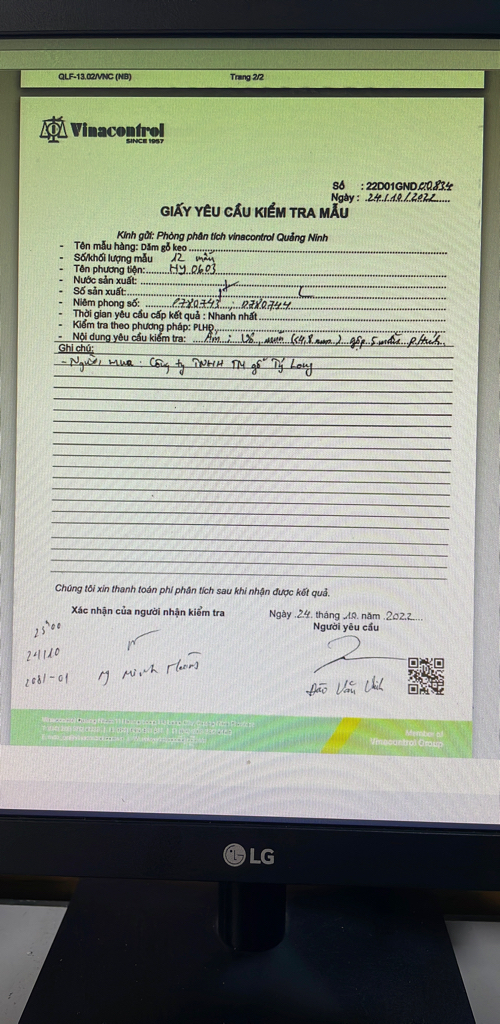 QLF-13.02/VNC (NB) Trang 2/2
Vinacontrol
SINCE 1957
Số : 22D01GND00834
Ngày : 24/10/2022
GIẤY YÊU CẦU KIỂM TRA MẪU
Kính gửi: Phòng phân tích vinacontrol Quảng Ninh
- Tên mẫu hàng: Dăm gỗ keo
- Số/khối lượng mẫu 12 mẫu
- Tên phương tiện: MY 0603
- Nước sản xuất:
- Số sản xuất:
- Niêm phong số: 0780743 ; 0780744
- Thời gian yêu cầu cấp kết quả : Nhanh nhất
- Kiểm tra theo phương pháp: PLHĐ
- Nội dung yêu cầu kiểm tra: Ẩm ; Vỏ, mùn (<4,8 mm) gộp 5 mẫu
Ghi chú:
- Người mua : Công ty TNHH TM gỗ Tý Long
Chúng tôi xin thanh toán phí phân tích sau khi nhận được kết quả.
Xác nhận của người nhận kiểm tra Ngày 24 tháng 10 năm 2022
Người yêu cầu
24/10
2081-01
Đào Văn
Member of
Vinacontrol Group
LG